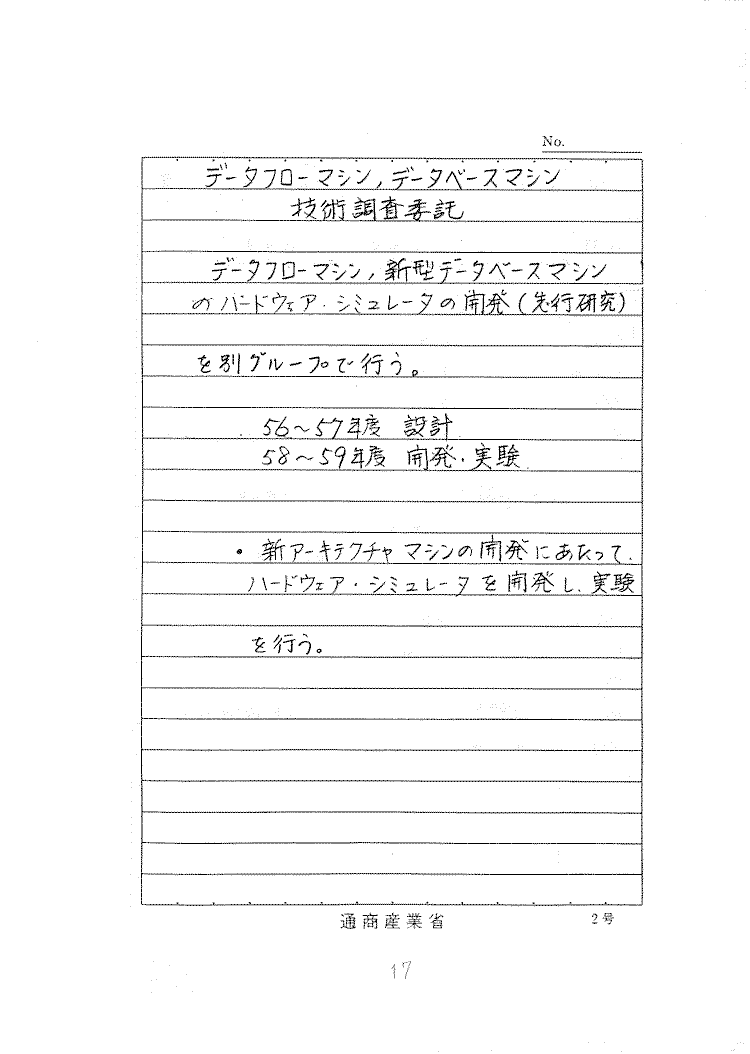 No.
データフローマシン,データベースマシン
技術調査委託
データフローマシン,新型データベースマシン
のハードウェア・シミュレータの開発(先行研究)
を別グループで行う。
56~57年度 設計
58~59年度 開発・実験
・新アーキテクチャマシンの開発にあたって、
ハードウェア・シミュレータを開発し、実験
を行う。
通商産業省 2号
17